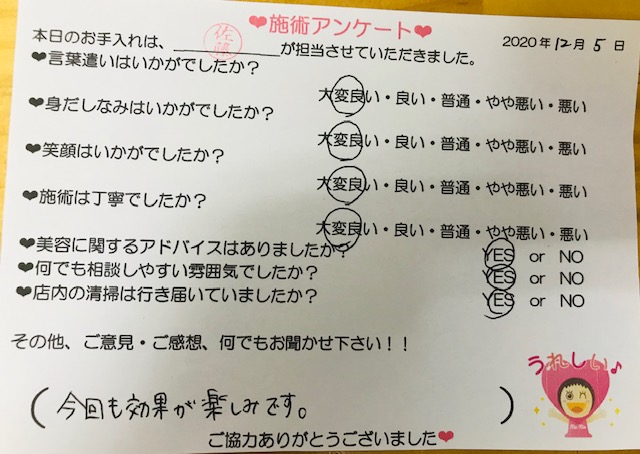 ❤施術アンケート❤
2020年12月5日
本日のお手入れは、佐藤が担当させていただきました。
❤言葉遣いはいかがでしたか?
大変良い・良い・普通・やや悪い・悪い
❤身だしなみはいかがでしたか?
大変良い・良い・普通・やや悪い・悪い
❤笑顔はいかがでしたか?
大変良い・良い・普通・やや悪い・悪い
❤施術は丁寧でしたか?
大変良い・良い・普通・やや悪い・悪い
❤美容に関するアドバイスはありましたか?
YES or NO
❤何でも相談しやすい雰囲気でしたか?
YES or NO
❤店内の清掃は行き届いていましたか?
YES or NO
その他、ご意見・ご感想、何でもお聞かせ下さい!!
うれしい♪
(今回も効果が楽しみです。)
ご協力ありがとうございました❤